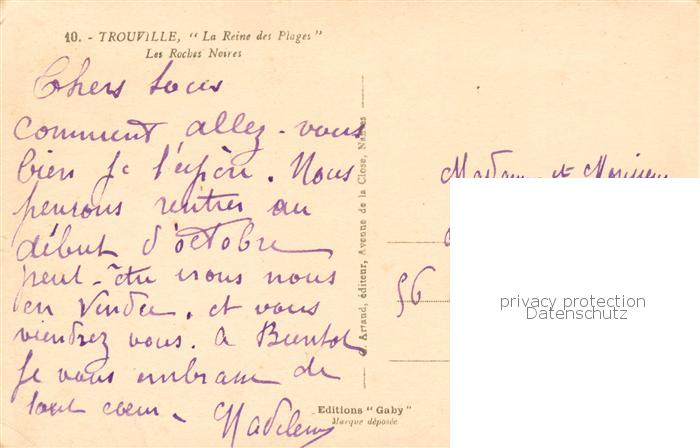 10. - TROUVILLE, "La Reine des Plages"
Les Roches Noires
Chers tous
comment allez-vous
bien je l'espère. Nous
pensons rentrer au
début d'octobre
peut-être irons nous
en Vendée, et vous
viendrez vous. a Bientot
Je vous embrasse de
tout coeur.
Madeleine
J. Artaud, éditeur, Avenue de la Close, Nantes
Editions "Gaby"
Marque déposée
Madame et Monsieur
56
privacy protection
Datenschutz